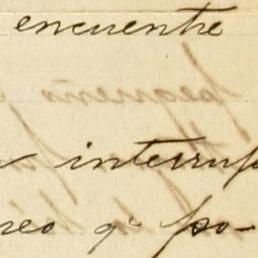 encuentre
interrup
reo q' po-